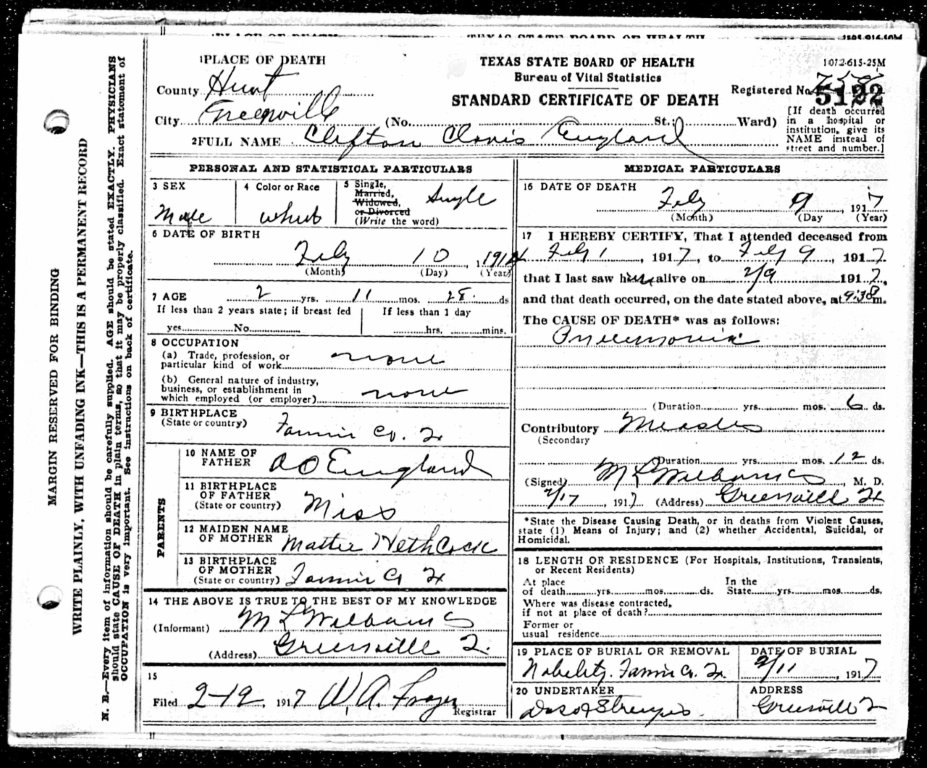 TEXAS STATE BOARD OF HEALTH
1PLACE OF DEATH
TEXAS STATE BOARD OF HEALTH
1072-615-25M
County Hunt
Bureau of Vital Statistics
Registered No. 5122
City Greenville (No. St.; Ward)
STANDARD CERTIFICATE OF DEATH
[If death occurred in a hospital or institution, give its NAME instead of street and number.]
2FULL NAME Clifton Clovis England
PERSONAL AND STATISTICAL PARTICULARS
3 SEX
Male
4 Color or Race
white
5 Single,
Married,
Widowed,
or Divorced
(Write the word)
Single
6 DATE OF BIRTH
Feby 10, 1914
(Month) (Day) (Year)
7 AGE 2 yrs. 11 mos. 28 ds
If less than 2 years state; if breast fed
yes No.
If less than 1 day
hrs. mins.
8 OCCUPATION
(a) Trade, profession, or
particular kind of work none
(b) General nature of industry,
business, or establishment in
which employed (or employer) none
9 BIRTHPLACE
(State or country) Fannin Co. Tx
PARENTS
10 NAME OF
FATHER A O England
11 BIRTHPLACE
OF FATHER
(State or country) Miss
12 MAIDEN NAME
OF MOTHER Mattie Hethcock
13 BIRTHPLACE
OF MOTHER
(State or country) Fannin Co Tx
14 THE ABOVE IS TRUE TO THE BEST OF MY KNOWLEDGE
(Informant) M L Wilbanks
(Address) Greenville Tx.
15
Filed 2-12 1917 W. A.
Registrar
MEDICAL PARTICULARS
16 DATE OF DEATH
Feby 9 1917
(Month) (Day) (Year)
17 I HEREBY CERTIFY, That I attended deceased from
Feby 1, 1917, to Feby 9, 1917
that I last saw him alive on 2/9 1917,
and that death occurred, on the date stated above, at 9:30 m.
The CAUSE OF DEATH* was as follows:
Pneumonia
(Duration yrs. mos. 6 ds.
Contributory Measles
(Secondary
Duration yrs. mos. 12 ds.
(Signed) M L Wilbanks M. D.
2/17 1917 (Address) Greenville Tx
*State the Disease Causing Death, or in deaths from Violent Causes,
state (1) Means of Injury; and (2) whether Accidental, Suicidal, or
Homicidal.
18 LENGTH OF RESIDENCE (For Hospitals, Institutions, Transients,
or Recent Residents)
At place
of death yrs. mos. ds.
In the
State yrs. mos. ds.
Where was disease contracted,
if not at place of death?
Former or
usual residence
19 PLACE OF BURIAL OR REMOVAL
Fannin Co. Tx.
DATE OF BURIAL
2/11, 1917
20 UNDERTAKER
ADDRESS
Greenville Tx
MARGIN RESERVED FOR BINDING
WRITE PLAINLY, WITH UNFADING INK—THIS IS A PERMANENT RECORD
N. B.—Every item of information should be carefully supplied. AGE should be stated EXACTLY. PHYSICIANS
should state CAUSE OF DEATH in plain terms, so that it may be properly classified. Exact statement of
OCCUPATION is very important. See instructions on back of certificate.